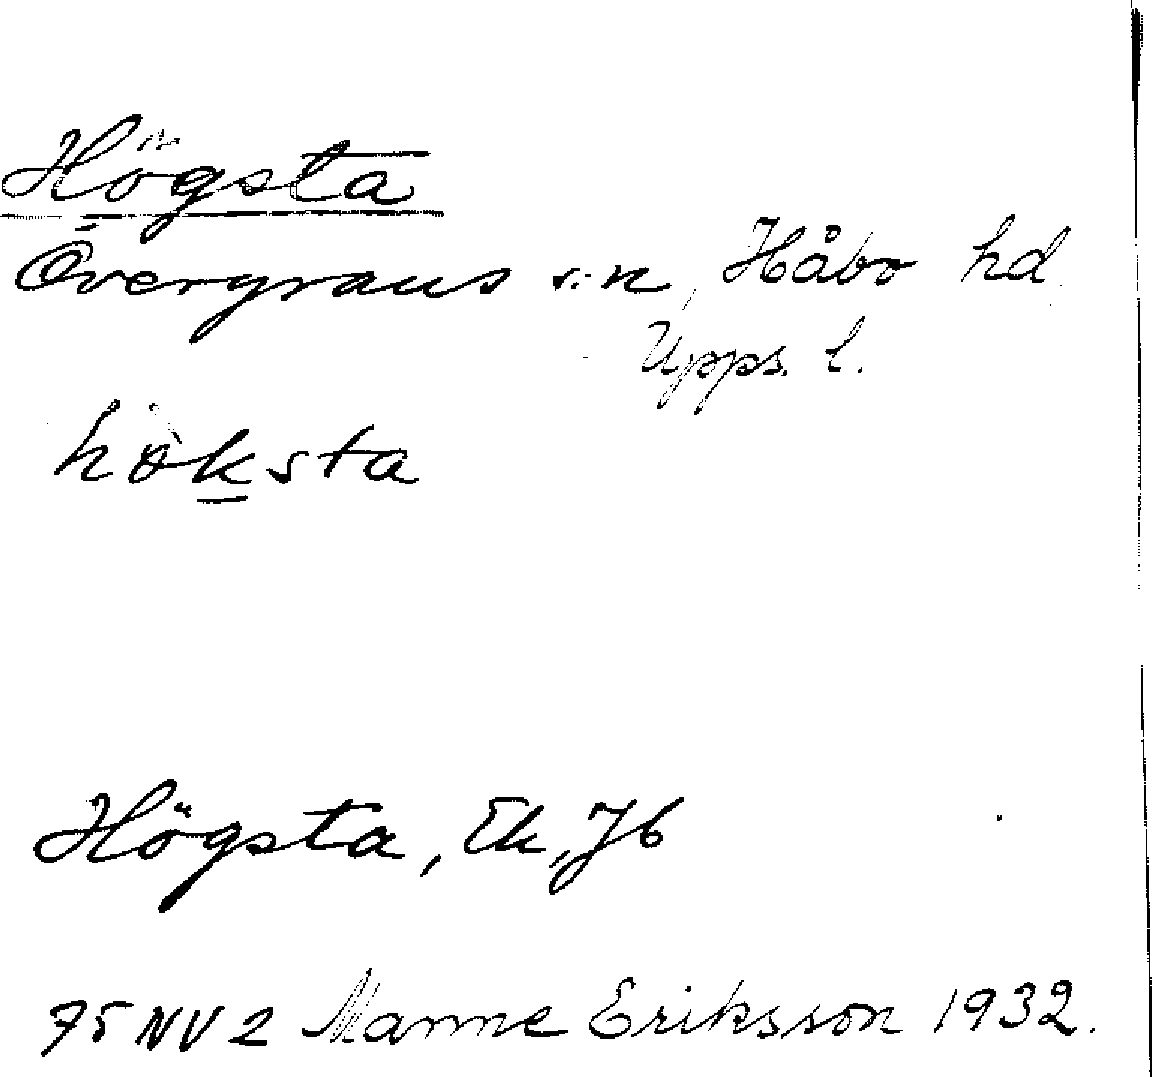 Högsta
Övergrans s:n, Håbo hd
Upps. l.
hòksta
Högsta, Ek, Jb
75 NV 2 Manne Eriksson 1932.